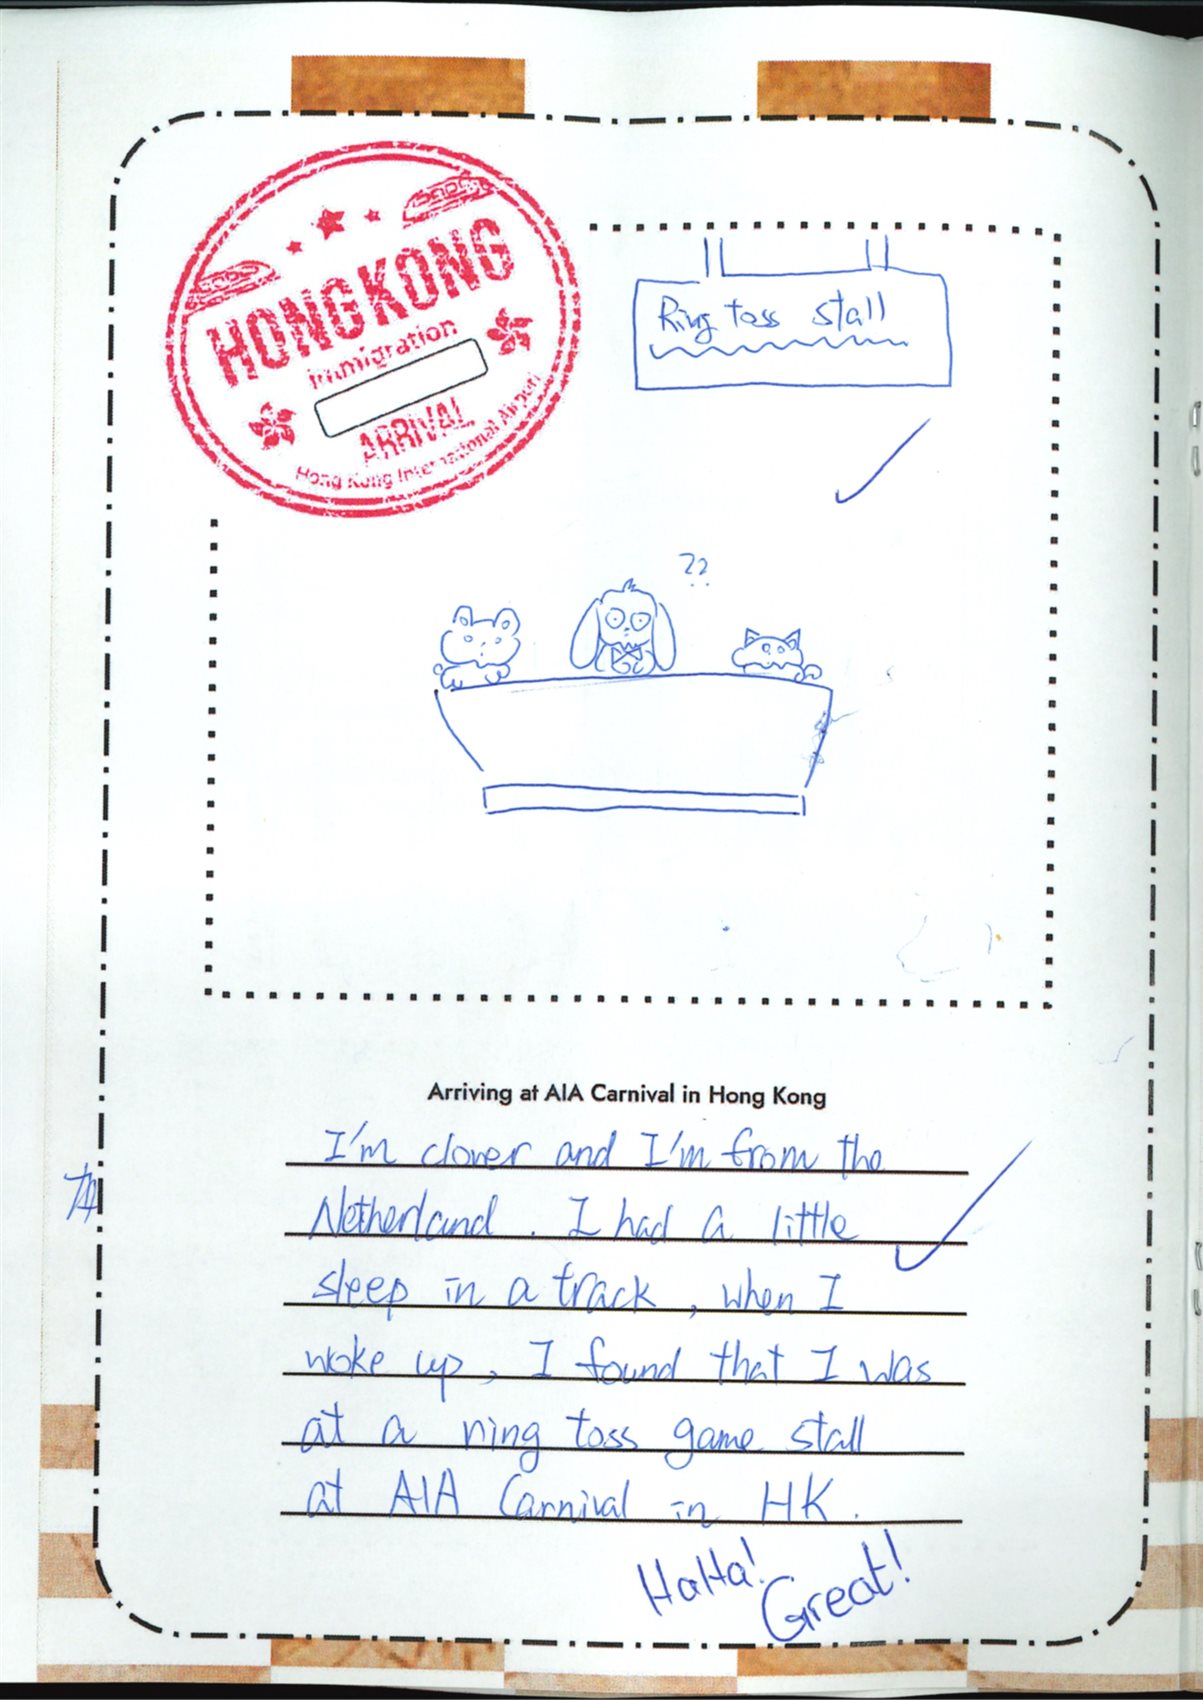 HONG KONG
Immigration
ARRIVAL
Hong Kong International Airport
Ring toss stall
??
Arriving at AIA Carnival in Hong Kong
I'm clover and I'm from the
Netherland. I had a little
sleep in a track, when I
woke up, I found that I was
at a ring toss game stall
at AIA Carnival in HK.
HaHa!
Great!